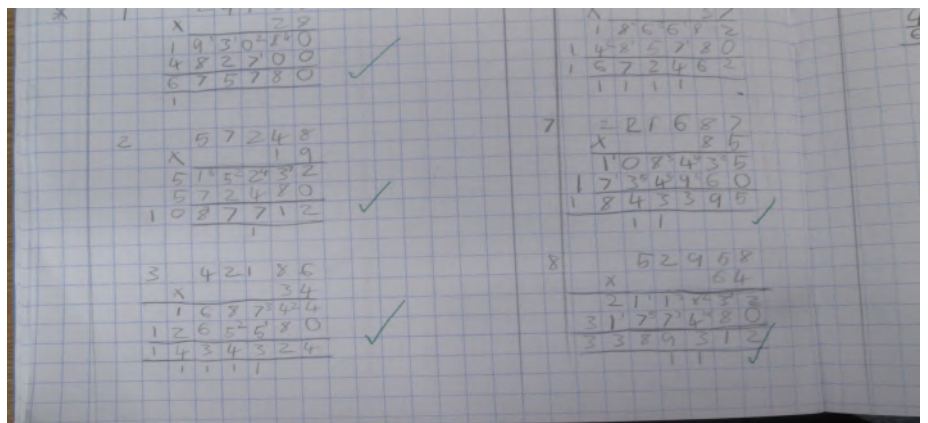 1
x 28
193080
482700
675780
1
2 57248
x 19
515232
572480
1087712
1
3 42186
x 34
168744
1265580
1434324
1 1 1 1
186682
1485780
1672462
1 1 1 1
7 21687
x 85
108435
1734960
1843395
1 1
8 52958
x 64
211832
3177480
3389312
1 1